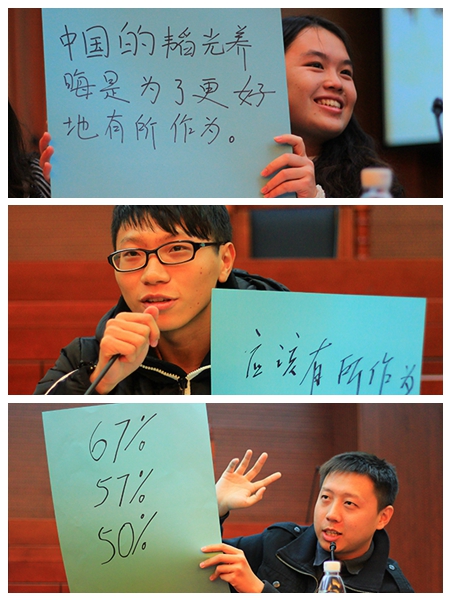 中国的韬光养
晦是为了更好
地有所作为。
应该有所作为
67%
57%
50%